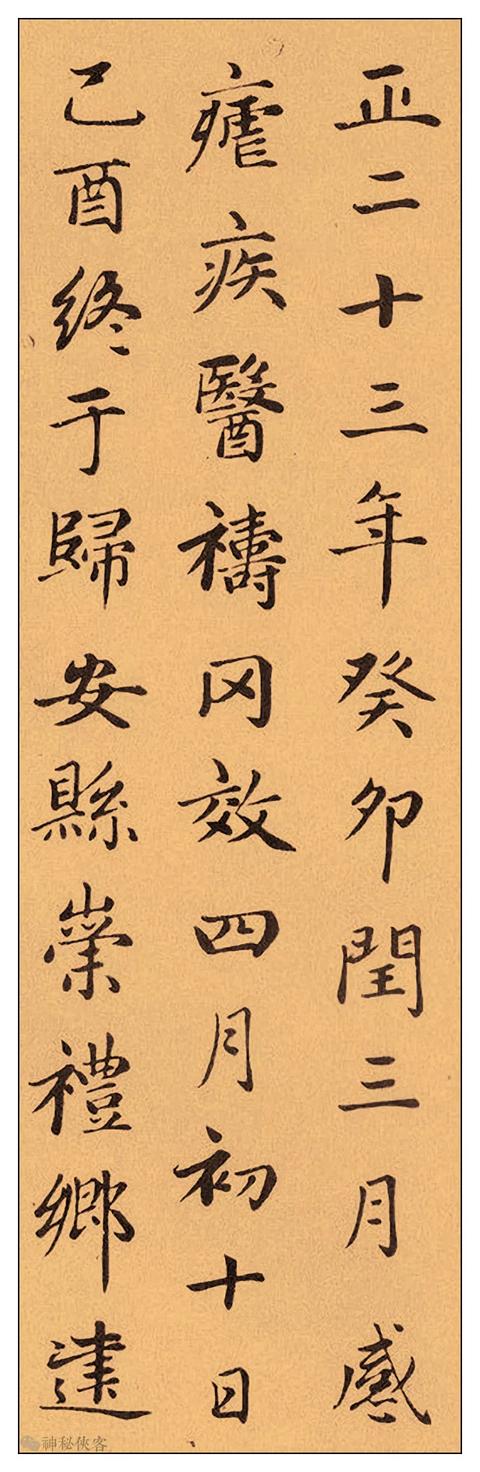 正二十三年癸卯閏三月感
瘧疾醫禱罔效四月初十日
己酉終于歸安縣崇禮鄉建
神秘俠客